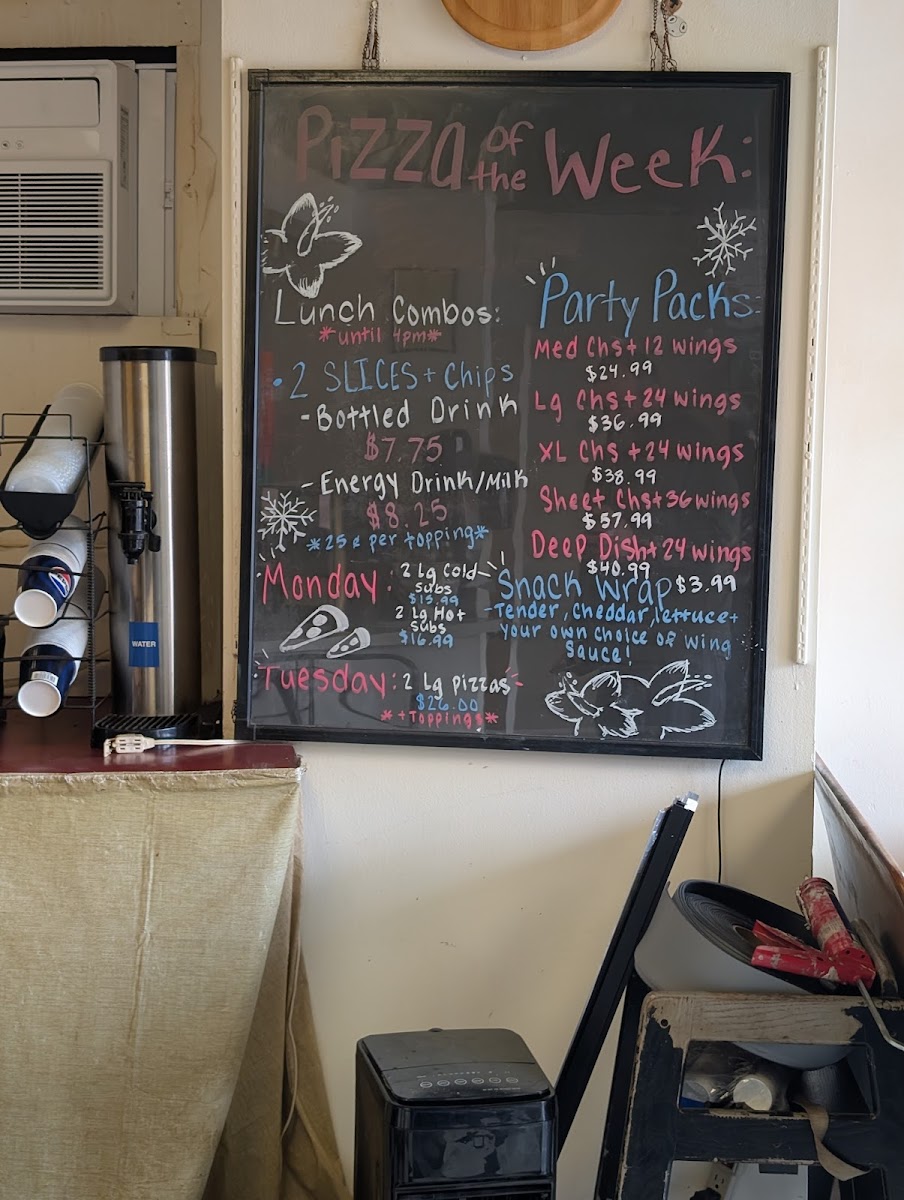 Pizza of the Week:
Lunch Combos:
*until 4pm*
• 2 SLICES + Chips
- Bottled Drink
$7.75
- Energy Drink/Milk
$8.25
*25¢ per topping*
Monday: 2 Lg Cold
Subs
$15.99
2 Lg Hot
Subs
$16.99
Tuesday: 2 Lg Pizzas
$26.00
*+Toppings*
Party Packs:
Med Chs + 12 wings
$24.99
Lg Chs + 24 wings
$36.99
XL Chs + 24 wings
$38.99
Sheet Chs + 36 wings
$57.99
Deep Dish + 24 wings
$40.99
Snack Wrap $3.99
- Tender, cheddar, lettuce +
your own choice of wing
sauce!
WATER